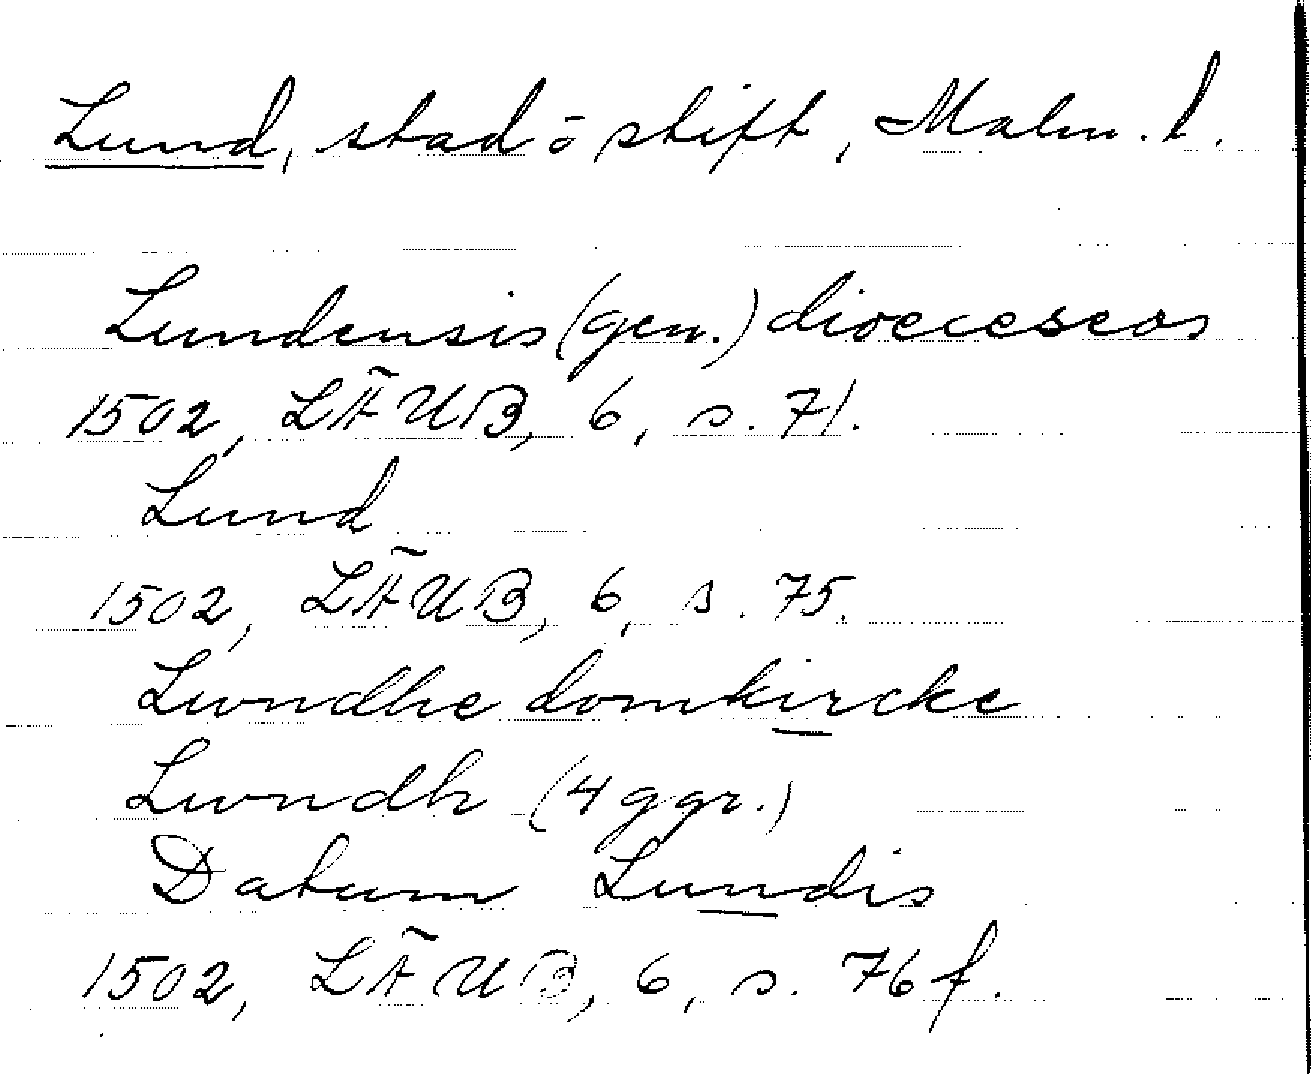 Lund, stad o stift, Malm. l.
Lundensis (gen.) dioeceseos
1502, LÄUB, 6, s. 71.
Lund
1502, LÄUB, 6, s. 75.
Lwndhe domkircke
Lwndh (4 ggr.)
Datum Lundis
1502, LÄUB, 6, s. 76 f.